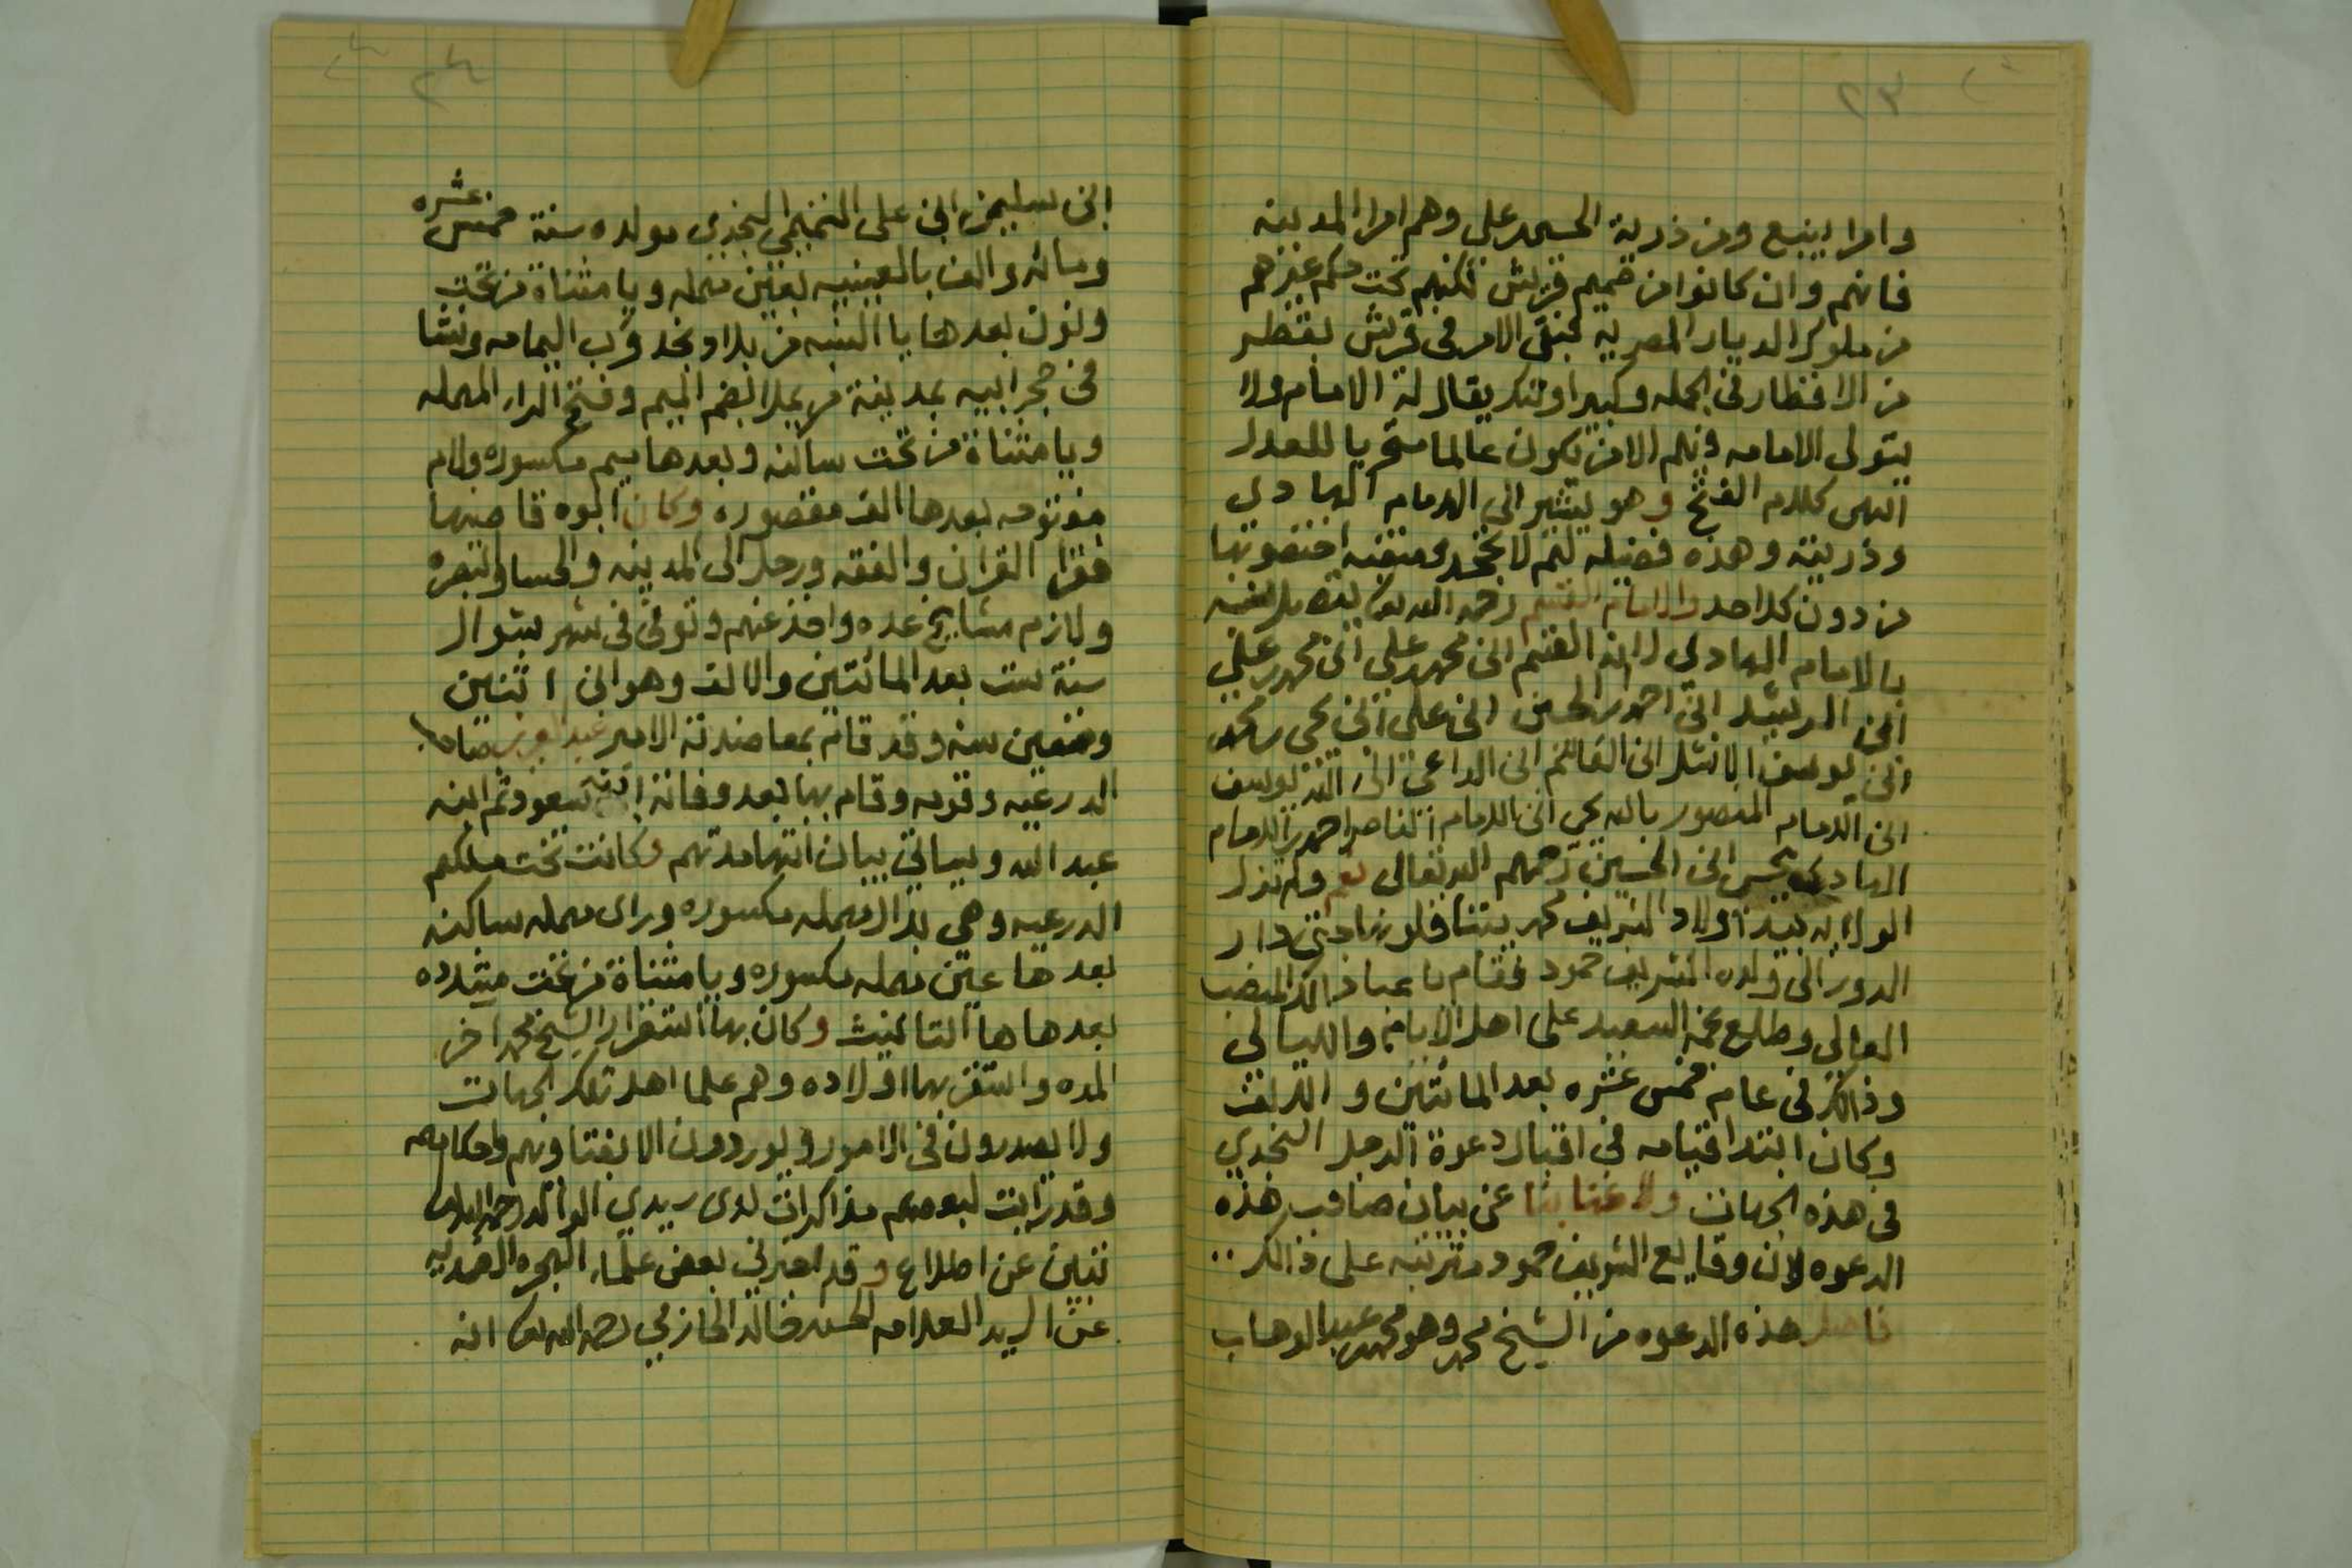 ٢٣
وامرا ينبع ومن ذرية الحسين بن علي وهم امرا المدينه
فانهم وان كانوا من صميم قريش لكنهم تحت حكم غيرهم
من ملوك الديار المصرية فبقي الامر في قريش بقطر
من الاقطار في الجمله وكبير اولئك يقال له الامام ولا
يتولى الامامه فيهم الا من يكون عالما متحريا للعدل
انتهى كلام الفتح وهو يشير الى الامام الهادي
وذريته وهذه فضيله لهم لا تجحد ومنقبه اختصوا بها
من دون كل احد والامام القسم رحمه الله تعالى يتصل نسبه
بالامام الهادي لانه القسم ابن محمد بن علي ابن محمد بن علي
ابن الرشيد ابن احمد بن الحسين ابن علي ابن يحيى بن محمد
ابن يوسف الاشل ابن القاسم ابن الداعي الى الله يوسف
ابن الامام المنصور بالله يحيى ابن الامام الناصر احمد بن الامام
الهادي يحيى ابن الحسين رحمهم الله تعالى نعم ولم تزل
الولايه بيد اولاد الشريف محمد يتناقلونها حتى دار
الدور الى ولده الشريف حمود فقام باعبا ذالك المنصب
العالي وطلع نجمه السعيد على اهل الايام والليالي
وذالك في عام خمس عشره بعد المائتين والالف
وكان ابتدا قيامه في اقبال دعوة الرجل النجدي
في هذه الجهات ولا غنا بنا عن بيان صاحب هذه
الدعوه لان وقايع الشريف حمود مترتبه على ذالك
فاصل هذه الدعوه من الشيخ محمد وهو محمد بن عبد الوهاب
٢٤
ابن سليمن ابن علي التميمي النجدي مولده سنة خمس عشره
ومائه والف بالعيينيه بعين مهمله ويا مثناة من تحت
ونون بعدها يا النسبه من بلاد نجد قرب اليمامه ونشا
في حجر ابيه بمدينة مريملا بضم الميم وفتح الراء المهمله
ويا مثناة من تحت ساكنه وبعدها ميم مكسوره ولام
مفتوحه بعدها الف مقصوره وكان ابوه قاضيها
فقرا القران والفقه ورحل الى المدينه والحسا والبصره
ولازم مشايخ عده واخذ عنهم وتوفى في شهر شوال
سنة ست بعد المائتين والالف وهو ابن اثنين
وتسعين سنه وقد قام بمعاضدته الامير عبد العزيز صاحب
الدرعيه وقومه وقام بها بعد وفاته ابنه سعود ثم ابنه
عبد الله وسياتي بيان انتها مدتهم وكانت تحت ملكهم
الدرعيه وهي بدال مهمله مكسوره وراى مهمله ساكنه
بعدها عين مهمله مكسوره ويا مثناة من تحت مشدده
بعدها ها التانيث وكان بها استقرار الشيخ محمد اخر
المده واستقر بها اولاده وهم علما اهل تلك الجهات
ولا يصدرون في الامور ويوردون الا بفتاويهم واحكامهم
وقد رايت لبعضهم مذاكرات لدى سيدي الوالد رحمه الله تعالى
تنبئ عن اطلاع وقد اخبرني بعض علماء الهجره الضمديه
عن السيد العلامه الحسن بن خالد الحازمي رحمه الله تعالى انه